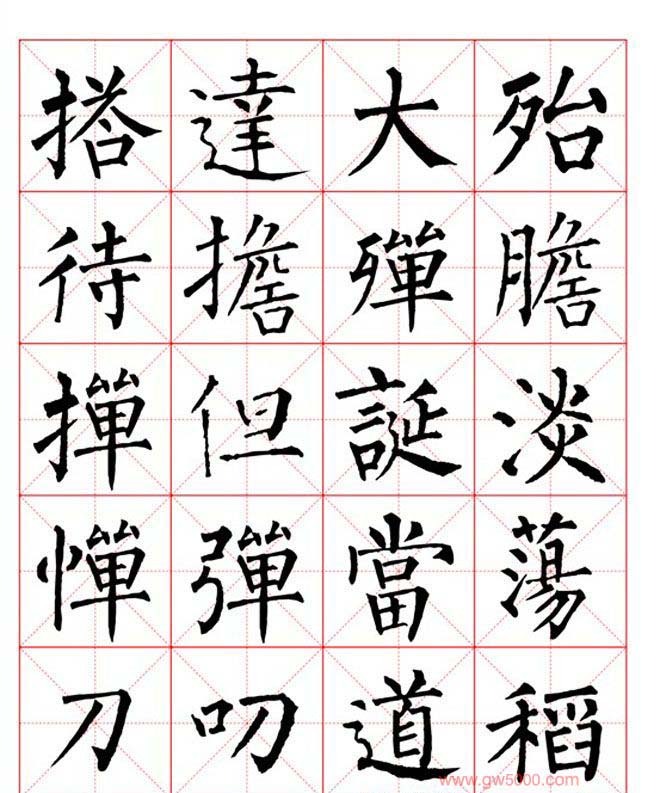 搭達大殆
待擔殫膽
撣但誕淡
憚彈當蕩
刀叨道稻
www.gw5000.com